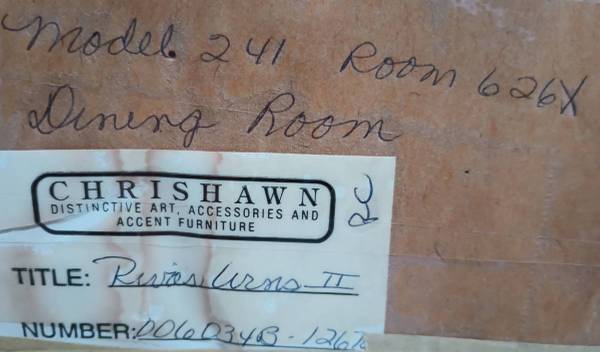 Model 241 Room 626X
Dining Room
CHRISHAWN
DISTINCTIVE ART, ACCESSORIES AND
ACCENT FURNITURE
RC
TITLE: Rivas Urns II
NUMBER: